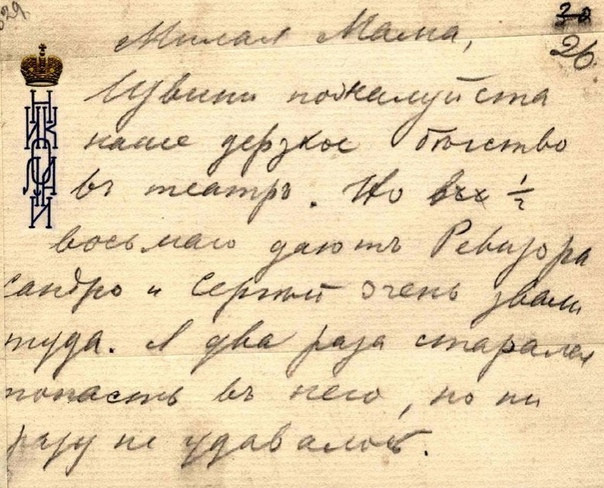 329
32
26
Милая Мама,
НИКОЛАЙ
Извини пожалуйста
наше дерзкое бѣгство
въ театръ. Но въ ½
восьмаго даютъ Ревизора
Сандро и Сергѣй очень звали
туда. Я два раза старался
попасть въ него, но ни
разу не удавалось.